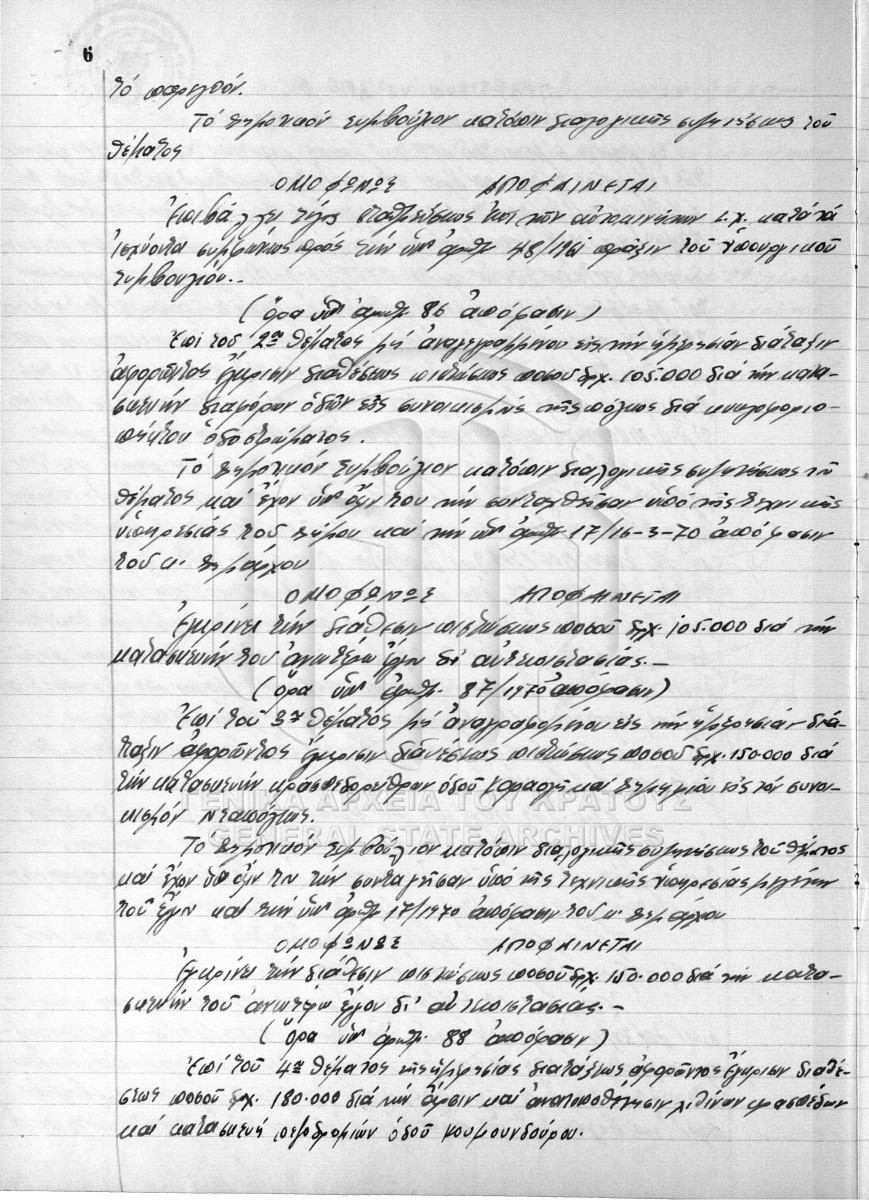 6
τό παρελθόν.
Τό Δημοτικόν Συμβούλιον κατόπιν διαλογικῆς συζητήσεως τοῦ
θέματος
ΟΜΟΦΩΝΩΣ ΑΠΟΦΑΙΝΕΤΑΙ
Ἐπιβάλλει τέλος σταθμεύσεως ἐπί τῶν αὐτοκινήτων Ι.Χ. κατά τά
ἰσχύοντα συμφώνως πρός τήν ὑπ' ἀριθ. 48/196 πρᾶξιν τοῦ Ὑπουργικοῦ
Συμβουλίου.-
(ὅρα ὑπ' ἀριθ. 86 ἀπόφασιν)
Ἐπί τοῦ 2ου θέματος μή ἀναγεγραμμένου εἰς τήν ἡμερησίαν διάταξιν
ἀφορῶντος ἔγκρισιν διαθέσεως πιστώσεως ποσοῦ δρχ. 105.000 διά τήν κατα-
σκευήν διαφόρων ὁδῶν εἰς συνοικισμούς τῆς πόλεως διά
ὁδοστρώματος.
Τό Δημοτικόν Συμβούλιον κατόπιν διαλογικῆς συζητήσεως τοῦ
θέματος καί ἔχον ὑπ' ὄψιν του τήν συνταχθεῖσαν ὑπό τῆς τεχνικῆς
ὑπηρεσίας τοῦ Δήμου καί τήν ὑπ' ἀριθ. 17/16-3-70 ἀπόφασιν
τοῦ κ. Δημάρχου
ΟΜΟΦΩΝΩΣ ΑΠΟΦΑΙΝΕΤΑΙ
Ἐγκρίνει τήν διάθεσιν πιστώσεως ποσοῦ δρχ. 105.000 διά τήν
κατασκευήν τοῦ ἀνωτέρω ἔργου δι' αὐτεπιστασίας.-
(ὅρα ὑπ' ἀριθ. 87/1970 ἀπόφασιν)
Ἐπί τοῦ θέματος μή ἀναγραφομένου εἰς τήν ἡμερησίαν διά-
ταξιν ἀφορῶντος ἔγκρισιν διαθέσεως πιστώσεως ποσοῦ δρχ. 150.000 διά
τήν κατασκευήν κρασπεδορείθρων ὁδοῦ καί εἰς τόν συνοι-
κισμόν Νεαπόλεως.
ΓΕΝΙΚΑ ΑΡΧΕΙΑ ΤΟΥ ΚΡΑΤΟΥΣ
GENERAL STATE ARCHIVES
Τό Δημοτικόν Συμβούλιον κατόπιν διαλογικῆς συζητήσεως τοῦ θέματος
καί ἔχον ὑπ' ὄψιν του τήν συνταγεῖσαν ὑπό τῆς τεχνικῆς ὑπηρεσίας μελέτην
τοῦ ἔργου καί τήν ὑπ' ἀριθ. 17/1970 ἀπόφασιν τοῦ κ. Δημάρχου
ΟΜΟΦΩΝΩΣ ΑΠΟΦΑΙΝΕΤΑΙ
Ἐγκρίνει τήν διάθεσιν πιστώσεως ποσοῦ δρχ. 150.000 διά τήν κατα-
σκευήν τοῦ ἀνωτέρω ἔργου δι' αὐτεπιστασίας.-
(ὅρα ὑπ' ἀριθ. 88 ἀπόφασιν)
Ἐπί τοῦ 4ου θέματος τῆς ἡμερησίας διατάξεως ἀφορῶντος ἔγκρισιν διαθέ-
σεως ποσοῦ δρχ. 180.000 διά τήν ἄρσιν καί ἀνατοποθέτησιν λιθίνων κρασπέδων
καί κατασκευή πεζοδρομίων ὁδοῦ Κουμουνδούρου.